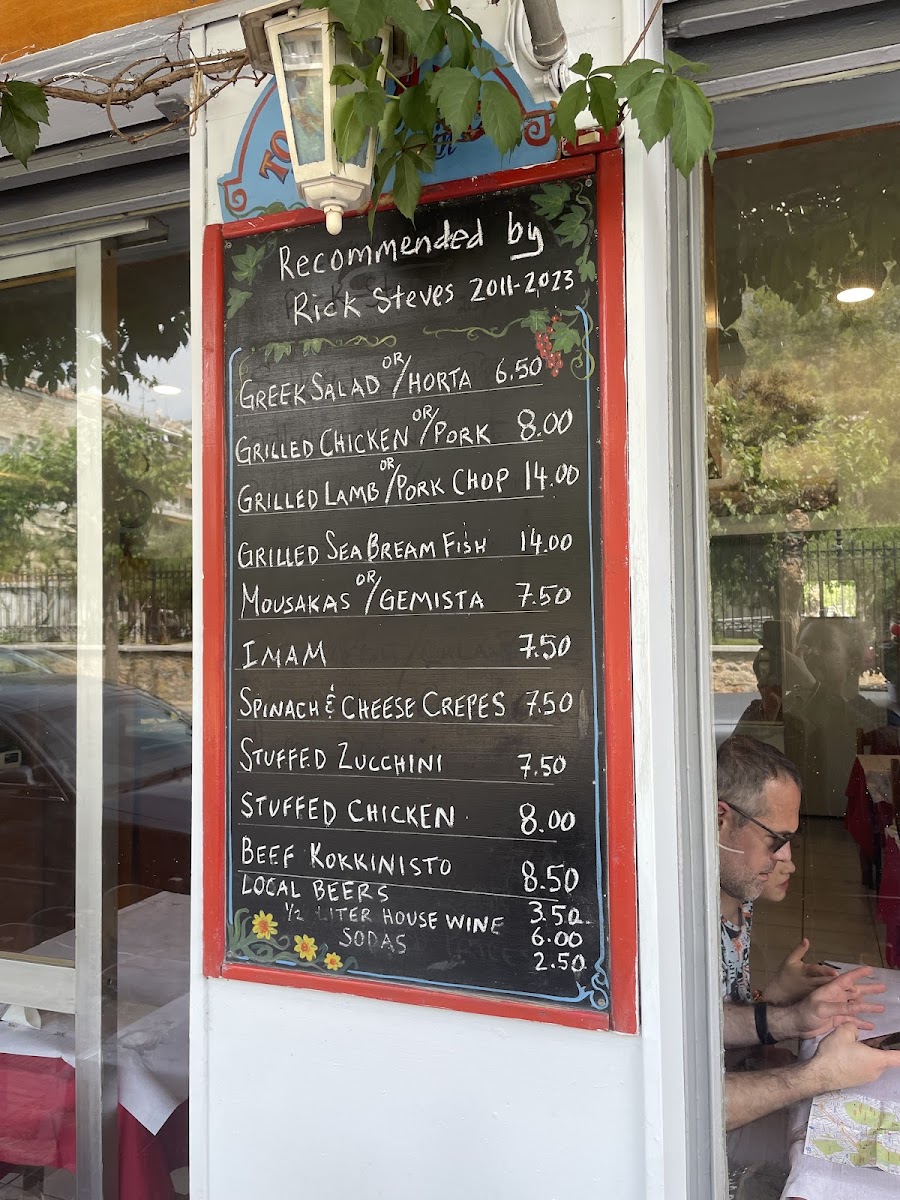 TO
Recommended by
Rick Steves 2011-2023
GREEK SALAD OR/HORTA 6.50
GRILLED CHICKEN OR/PORK 8.00
GRILLED LAMB OR/PORK CHOP 14.00
GRILLED SEA BREAM FISH 14.00
MOUSAKAS OR/GEMISTA 7.50
IMAM 7.50
SPINACH & CHEESE CREPES 7.50
STUFFED ZUCCHINI 7.50
STUFFED CHICKEN 8.00
BEEF KOKKINISTO 8.50
LOCAL BEERS 3.50
1/2 LITER HOUSE WINE 6.00
SODAS 2.50